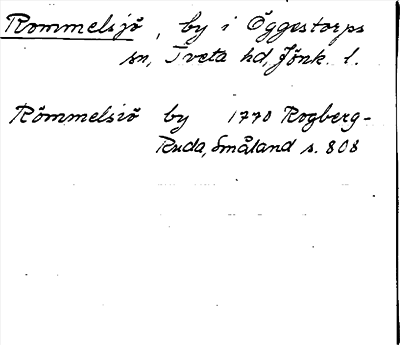 Rommelsjö, by i Öggestorps
sn, Tveta hd, Jönk. l.
Römmelsiö by 1770 Rogberg-
Ruda, Småland s. 808